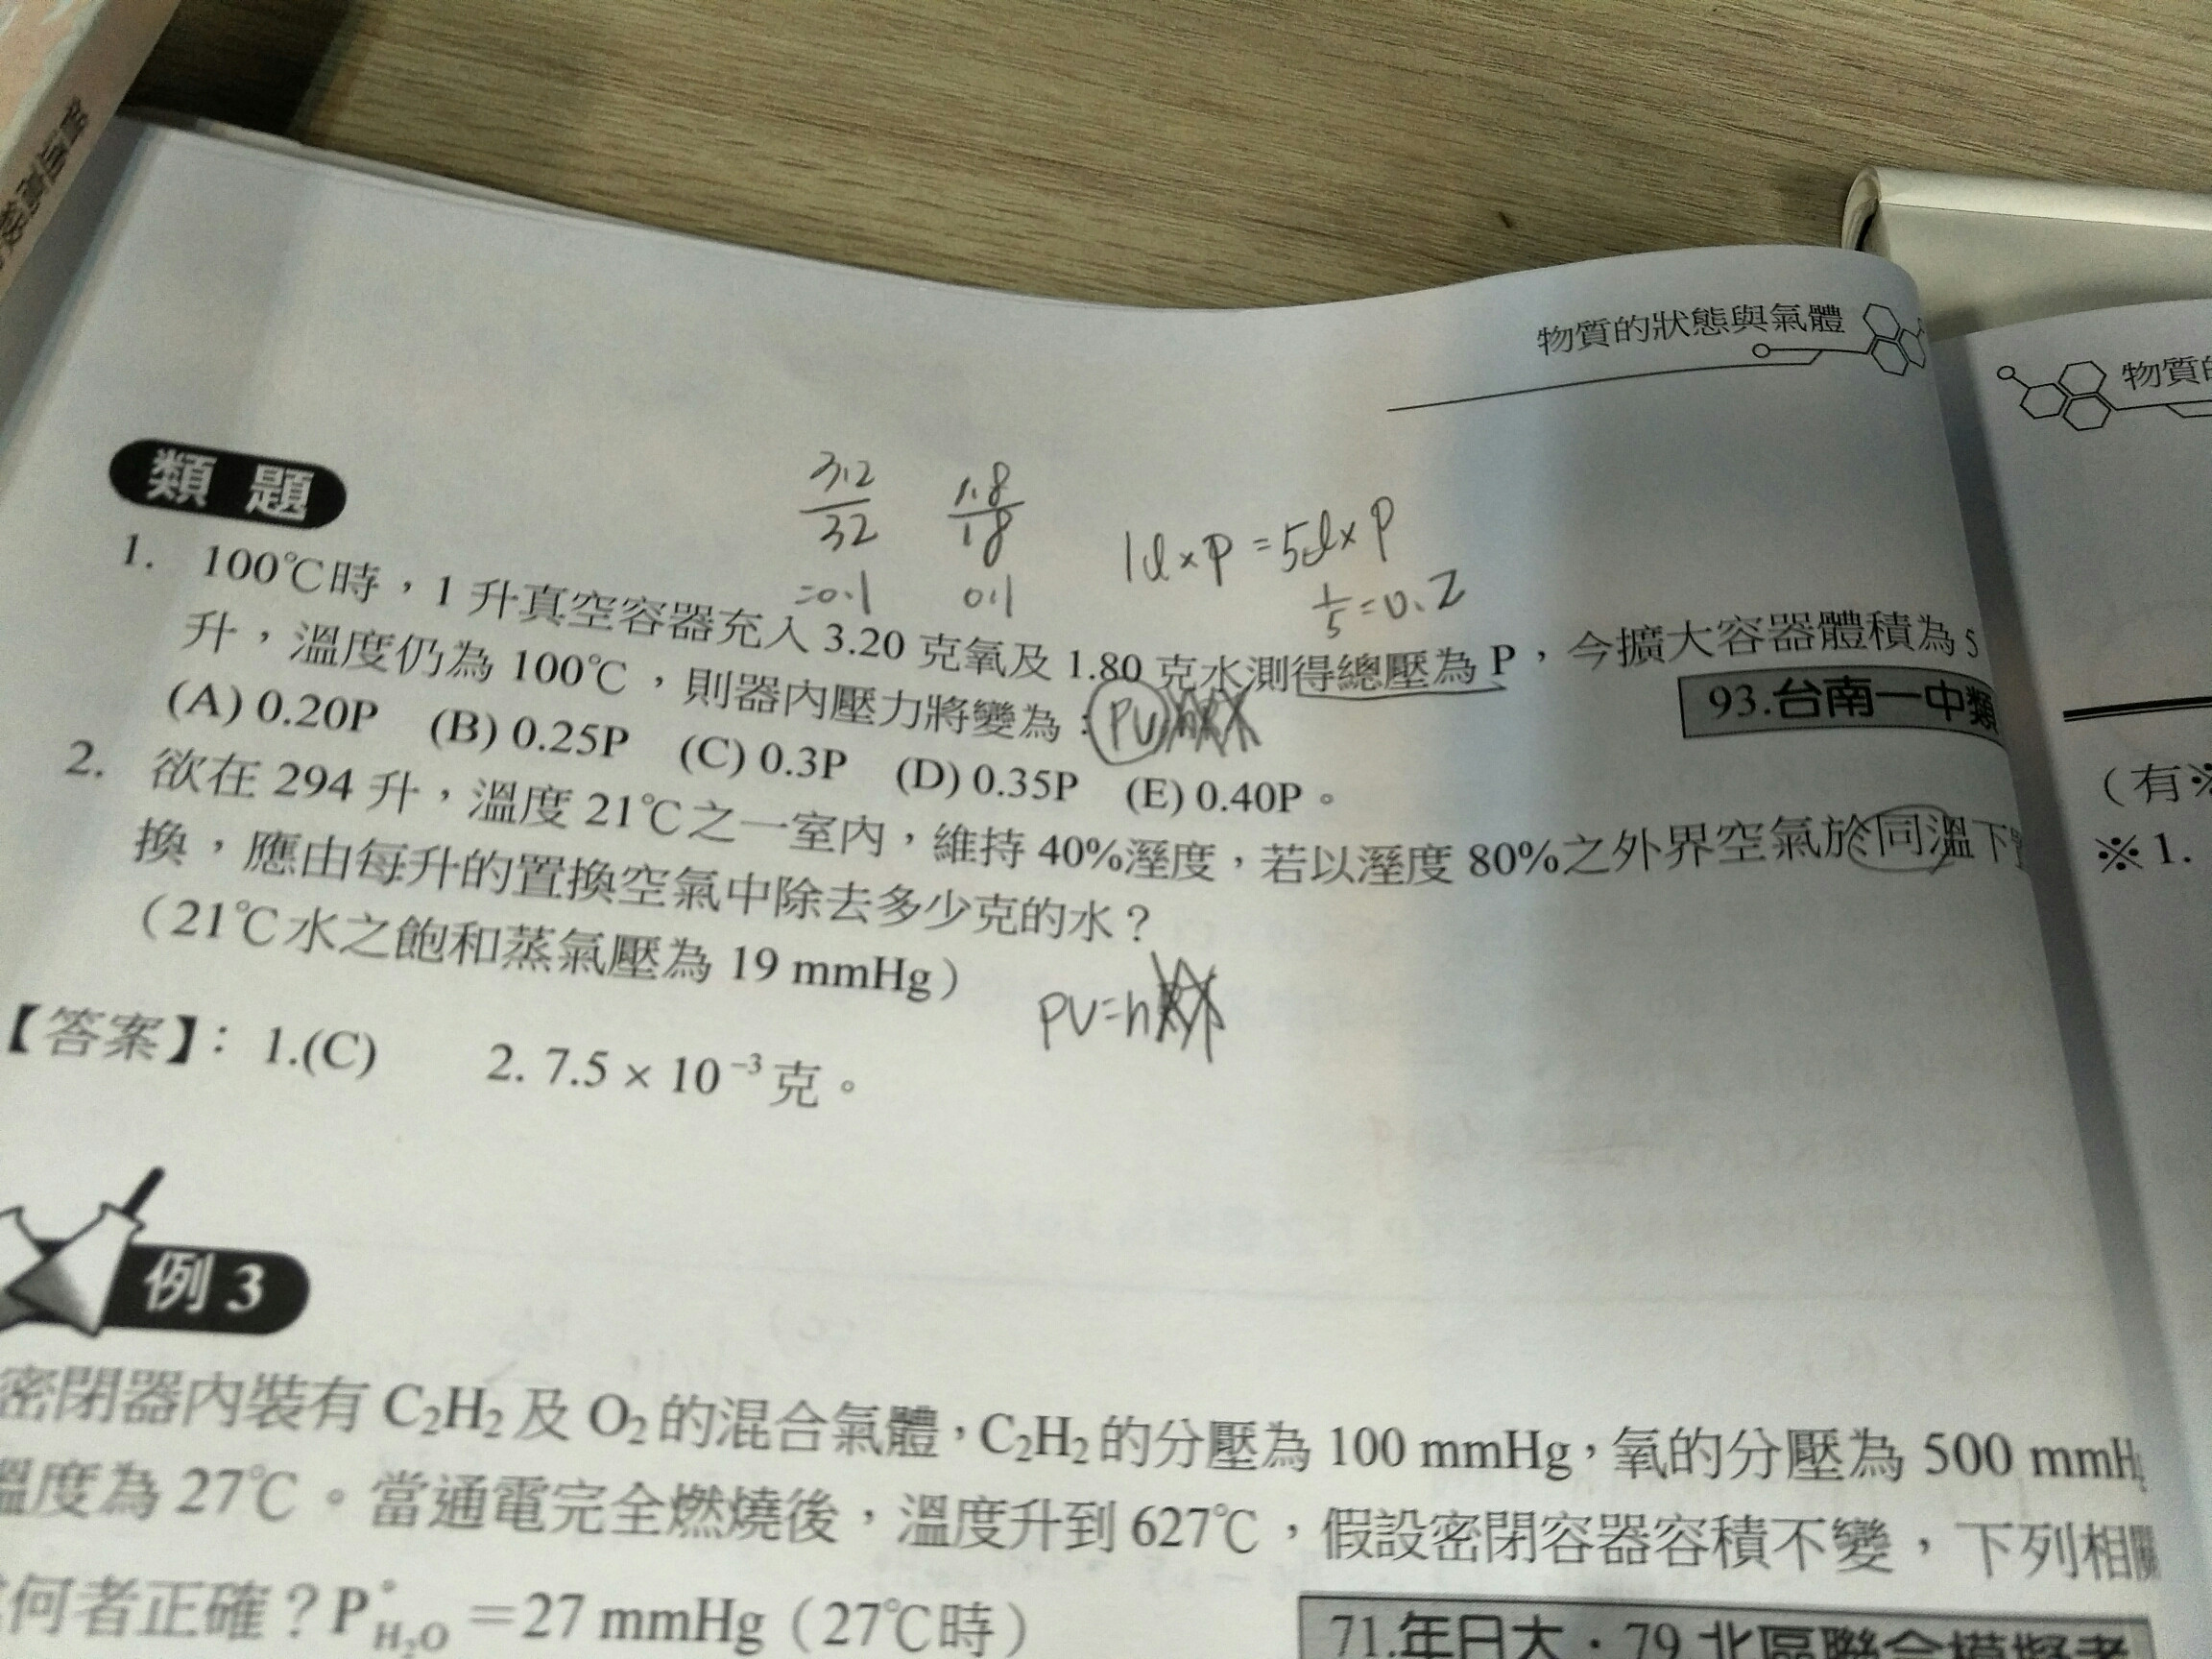 物質的狀態與氣體
物質的
類題
3.2/32 =0.1
1.8/18 0.1
1l×P=5l×P
1/5=0.2
1. 100℃時，1升真空容器充入3.20克氧及1.80克水測得總壓為P，今擴大容器體積為5
升，溫度仍為100℃，則器內壓力將變為：PV
93.台南一中類
(A) 0.20P (B) 0.25P (C) 0.3P (D) 0.35P (E) 0.40P。
2. 欲在294升，溫度21℃之一室內，維持40%溼度，若以溼度80%之外界空氣於同溫下
換，應由每升的置換空氣中除去多少克的水？
（21℃水之飽和蒸氣壓為19 mmHg）
PV=n
【答案】：1.(C) 2. 7.5 × 10⁻³克。
（有※
※1.
例3
密閉器內裝有C₂H₂及O₂的混合氣體，C₂H₂的分壓為100 mmHg，氧的分壓為500 mmH
溫度為27℃。當通電完全燃燒後，溫度升到627℃，假設密閉容器容積不變，下列相關
何者正確？P°H₂O＝27 mmHg（27℃時）
71.年日大．79.北區聯合模擬考